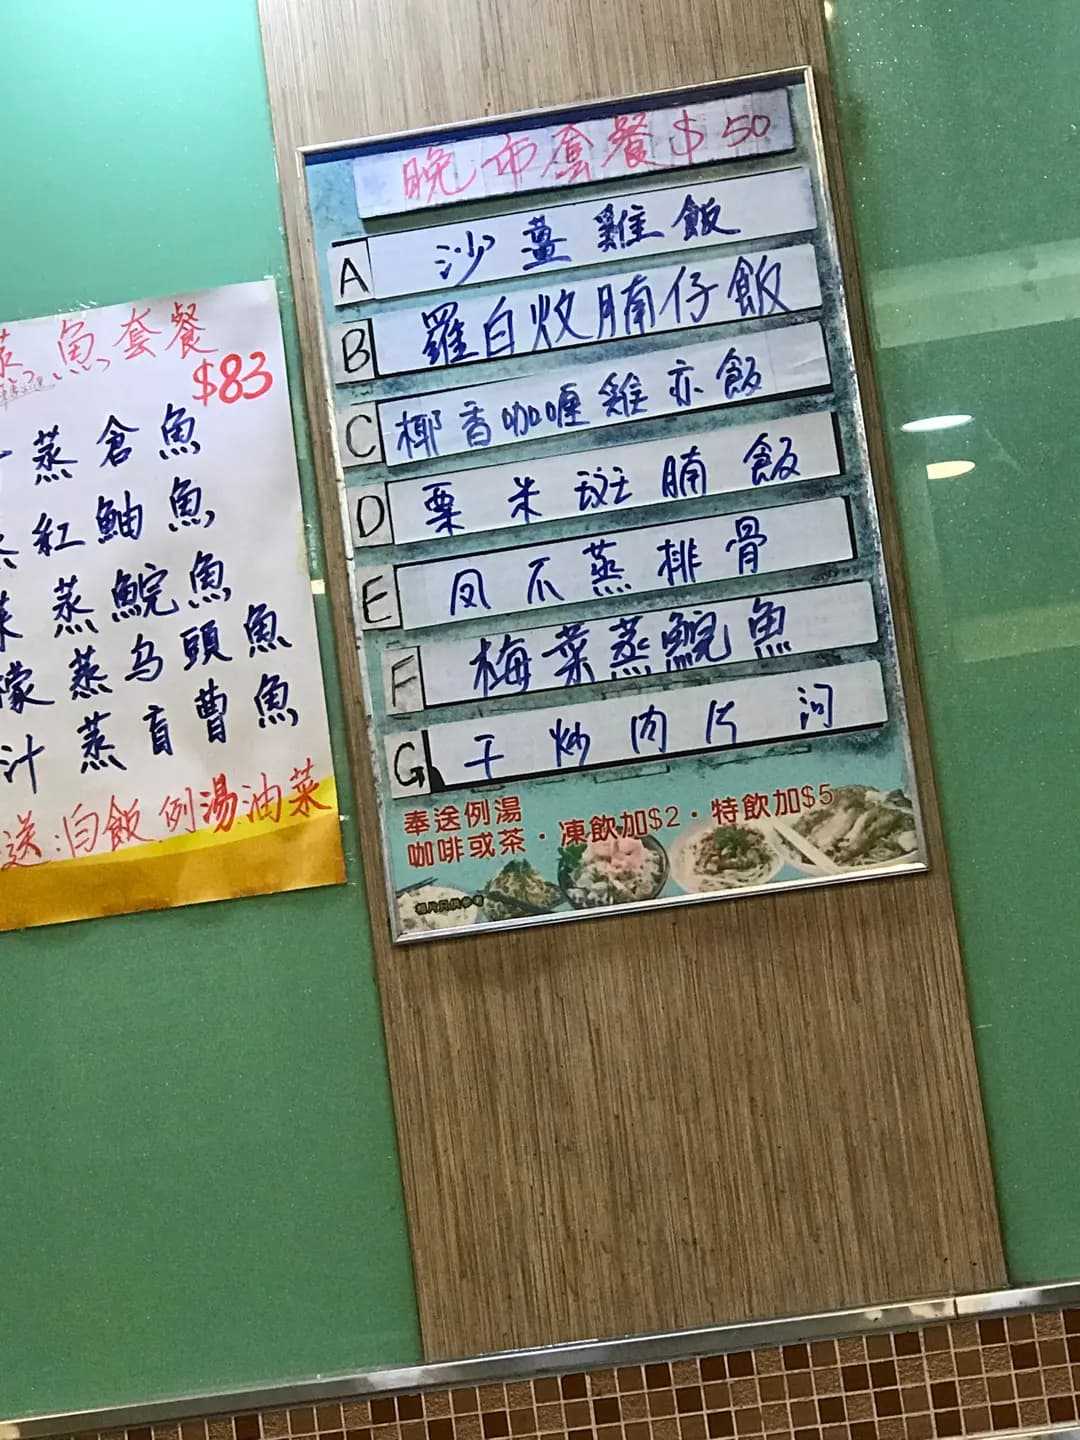 蒸魚套餐
$83
蒸倉魚
蒸紅鮋魚
菜蒸鯇魚
檬蒸乌頭魚
汁蒸盲曹魚
送:白飯例湯油菜
晚市套餐$50
A 沙薑雞飯
B 羅白炆腩仔飯
C 椰香咖喱雞亦飯
D 粟米斑腩飯
E 凤爪蒸排骨
F 梅菜蒸鯇魚
G 干炒肉片河
奉送例湯
咖啡或茶・凍飲加$2・特飲加$5
相片只供參考